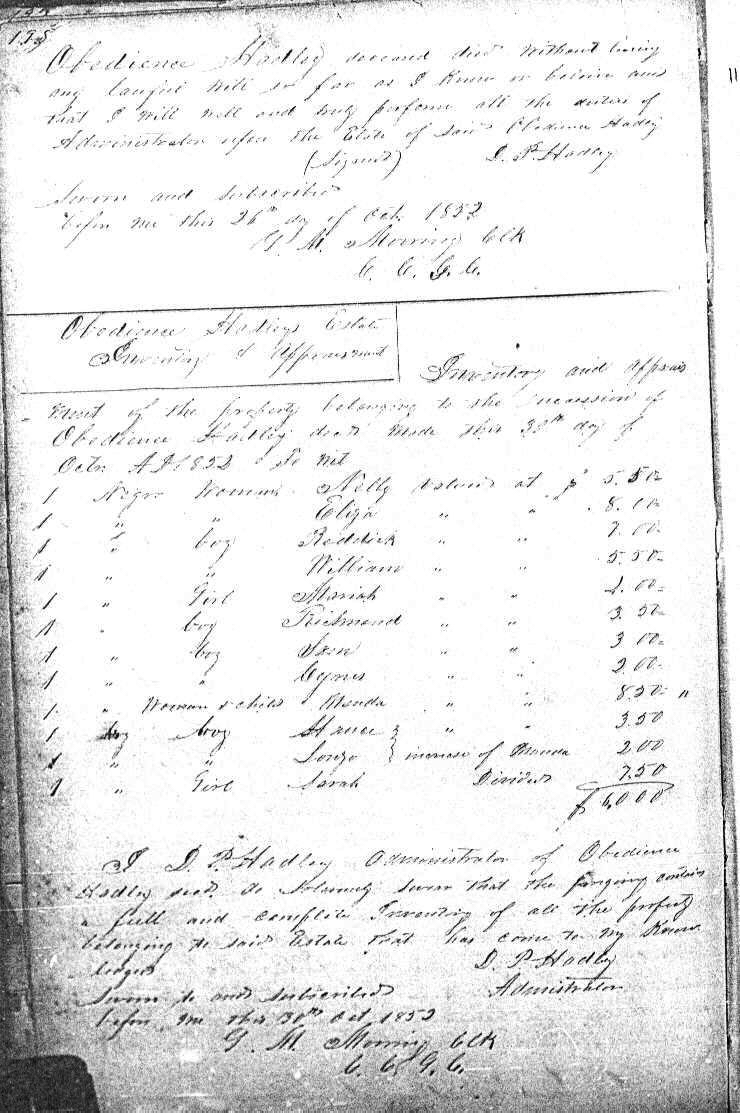 135
Obedience Hadley deceased died without leaving
any lawful will so far as I Know or believe and
that I will well and truly perform all the duties of
Administrator upon the Estate of said Obedience Hadley
(Signed) D. P. Hadley
Sworn and subscribed
before me this 26th day of Oct. 1852
G. M. Morning Clk
C. C. G. C.
Obedience Hadleys Estate
Inventory & Appraisment
Inventory and Apprais
ment of the property belonging to the succession of
Obedience Hadley decd. Made this 30th day of
Octr. AD 1852 To Wit
1 Negro Woman Nelly Valued at $ 5.50
1 " " Eliza " " 8.00
1 " boy Reddick " " 7.00
1 " " William " " 5.50
1 " Girl Mariah " " 4.00
1 " boy Richmond " " 3.50
1 " boy " " 3 00
1 " " Cyrus " " 2.00
1. " Woman & child Rhenda " " 8.50 "
1 boy boy " " 3.50
1 " " Lonzo } increase of Rhenda 2.00
1 " Girl Sarah Divided 7.50
$ 6,000
I D. P. Hadley Administrator of Obedience
Hadley decd. do solemnly swear that the forgoing contains
a full and complete Inventory of all the property
belonging to said Estate that has come to my Know
ledge
D. P. Hadley
Administrator
Sworn to and subscribed
before me this 30th Oct 1852
G. M. Morning Clk
C. C. G. C.